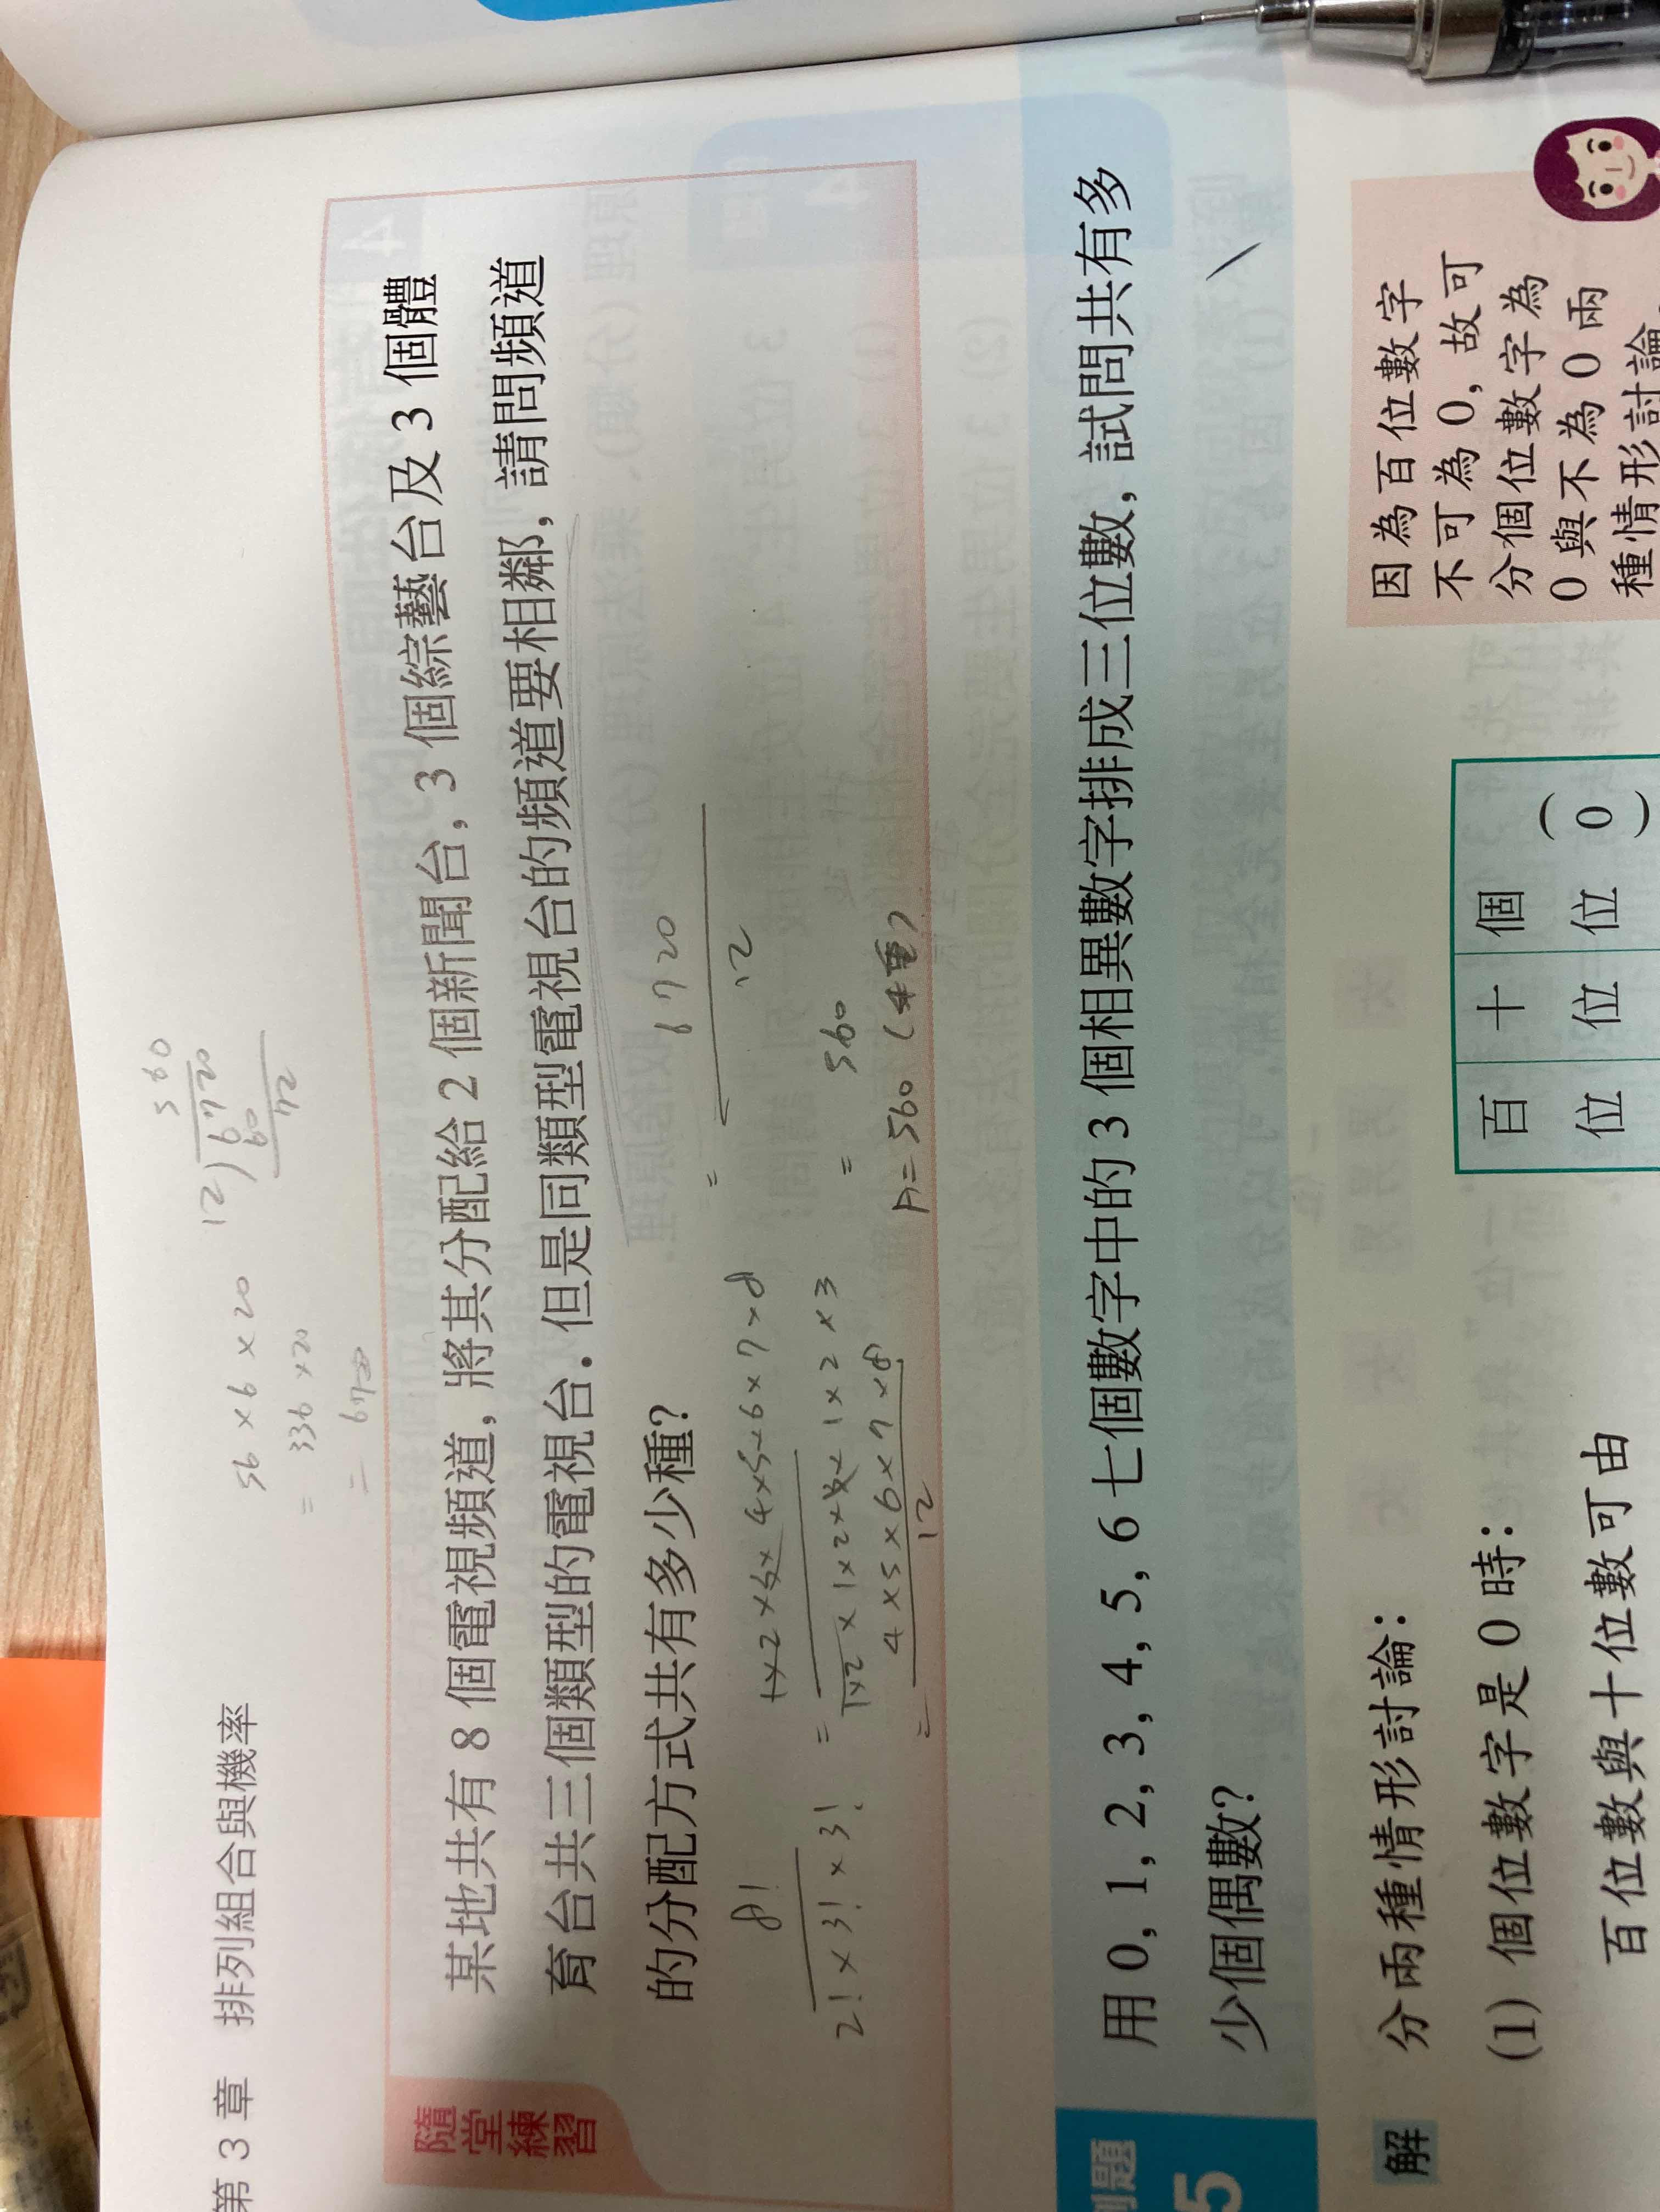 第 3 章 排列組合與機率
56 × 6 × 20
= 336 × 20
= 6720
560
12)6720
60
72
隨堂練習
某地共有 8 個電視頻道, 將其分配給 2 個新聞台, 3 個綜藝台及 3 個體
育台共三個類型的電視台. 但是同類型電視台的頻道要相鄰, 請問頻道
的分配方式共有多少種?
8!
2! × 3! × 3!
= 1×2×3×4×5×6×7×8
1×2×1×2×3×1×2×3
= 4×5×6×7×8
12
= 6720
12
= 560
A = 560 (種)
例題
5
用 0, 1, 2, 3, 4, 5, 6 七個數字中的 3 個相異數字排成三位數, 試問共有多
少個偶數?
解
分兩種情形討論:
(1) 個位數字是 0 時:
百位數與十位數可由
百位 十位 個位
(0)
因為百位數字
不可為 0, 故可
分個位數字為
0 與不為 0 兩
種情形討論